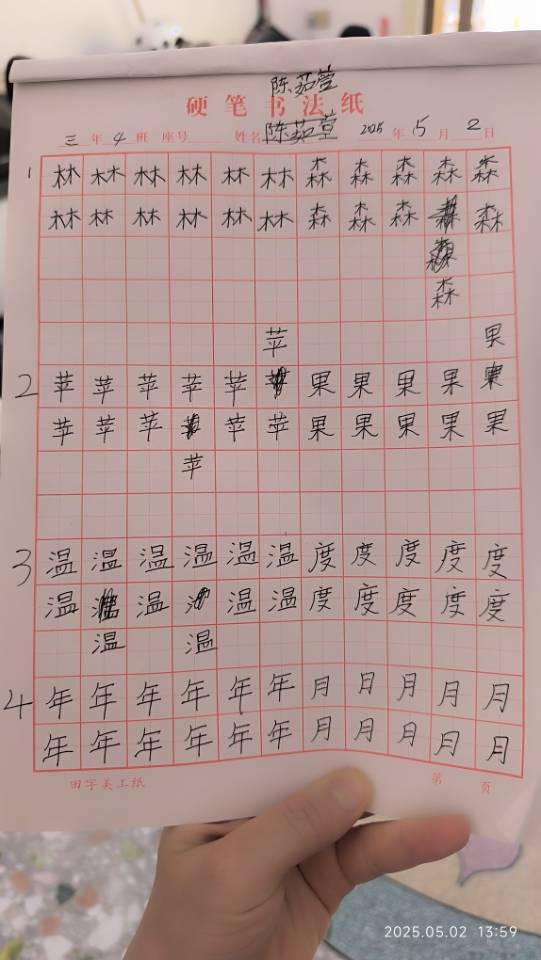 陈茹萱
硬笔书法纸
三年4班 座号 姓名 陈茹萱 2025年5月2日
1 林 林 林 林 林 林 森 森 森 森 森
林 林 林 林 林 林 森 森 森 森
森
苹 果
2 苹 苹 苹 苹 苹 果 果 果 果
苹 苹 苹 苹 苹 果 果 果 果 果
苹
3 温 温 温 温 温 温 度 度 度 度 度
温 温 温 温 度 度 度 度 度
温 温
4 年 年 年 年 年 年 月 月 月 月 月
年 年 年 年 年 年 月 月 月 月 月
田字美工纸 第 页
2025.05.02 13:59